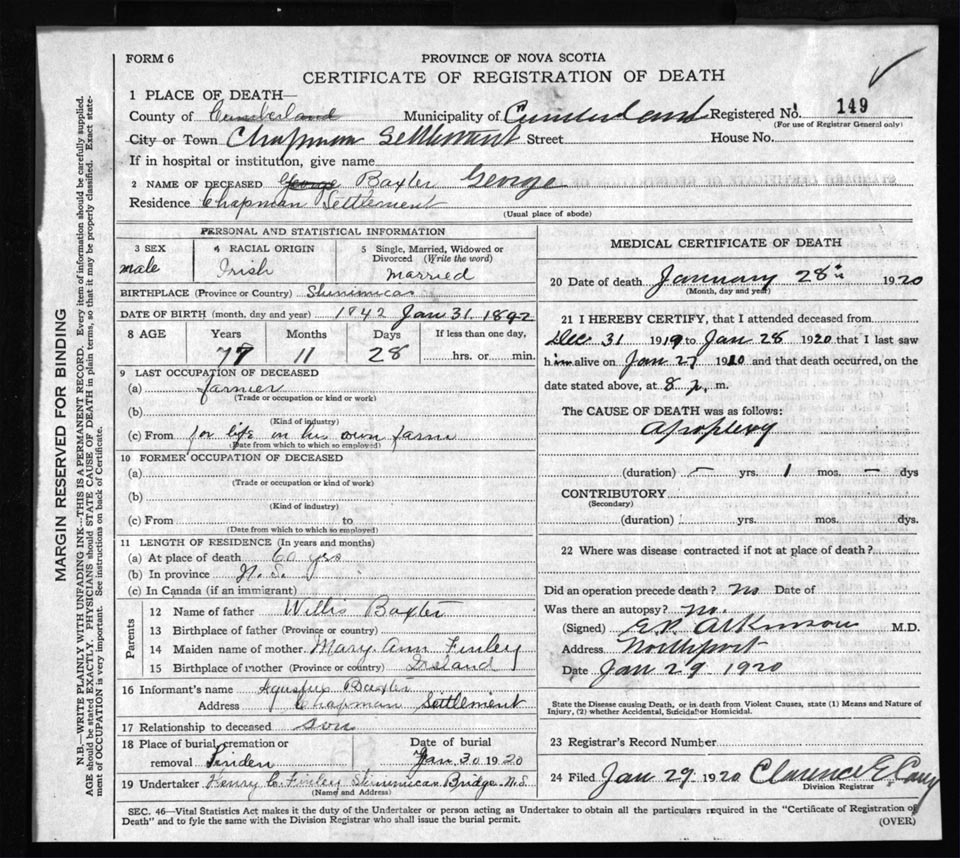 FORM 6
PROVINCE OF NOVA SCOTIA
CERTIFICATE OF REGISTRATION OF DEATH
1 PLACE OF DEATH—
County of Cumberland Municipality of Cumberland Registered No. 149
(For use of Registrar General only)
City or Town Chapman Settlement Street House No.
If in hospital or institution, give name
2 NAME OF DECEASED George Baxter George
Residence Chapman Settlement
(Usual place of abode)
PERSONAL AND STATISTICAL INFORMATION
3 SEX
male
4 RACIAL ORIGIN
Irish
5 Single, Married, Widowed or Divorced (Write the word)
Married
BIRTHPLACE (Province or Country) Shinimicas
DATE OF BIRTH (month, day and year) 1842 Jan 31 1842
8 AGE Years Months Days If less than one day,
77 11 28 hrs. or min.
9 LAST OCCUPATION OF DECEASED
(a) farmer
(Trade or occupation or kind or work)
(b)
(Kind of industry)
(c) From for life on his own farm
(Date from which to which so employed)
10 FORMER OCCUPATION OF DECEASED
(a)
(Trade or occupation or kind of work)
(b)
(Kind of industry)
(c) From to
(Date from which to which so employed)
11 LENGTH OF RESIDENCE (In years and months)
(a) At place of death 60 yrs
(b) In province N.S.
(c) In Canada (if an immigrant)
Parents
12 Name of father Willis Baxter
13 Birthplace of father (Province or country)
14 Maiden name of mother Mary Ann Finley
15 Birthplace of mother (Province or country) Ireland
16 Informant's name Agustus Baxter
Address Chapman Settlement
17 Relationship to deceased son
18 Place of burial, cremation or removal Linden
Date of burial Jan 30 1920
19 Undertaker Henry C. Finley Shinimicas Bridge. N.S.
(Name and Address)
MEDICAL CERTIFICATE OF DEATH
20 Date of death January 28th 1920
(Month, day and year)
21 I HEREBY CERTIFY, that I attended deceased from
Dec 31 1919 to Jan 28 1920 that I last saw
him alive on Jan 27 1920 and that death occurred, on the
date stated above, at 8 p. m.
The CAUSE OF DEATH was as follows:
Apoplexy
(duration) – yrs. 1 mos. – dys
CONTRIBUTORY
(Secondary)
(duration) yrs. mos. dys.
22 Where was disease contracted if not at place of death?
Did an operation precede death? No Date of
Was there an autopsy? No.
(Signed) Atkinson M.D.
Address Northport
Date Jan 29 1920
State the Disease causing Death, or in death from Violent Causes, state (1) Means and Nature of
Injury, (2) whether Accidental, Suicidal or Homicidal.
23 Registrar's Record Number
24 Filed Jan 29 1920 Clarence E
Division Registrar
SEC. 46—Vital Statistics Act makes it the duty of the Undertaker or person acting as Undertaker to obtain all the particulars required in the "Certificate of Registration of
Death" and to fyle the same with the Division Registrar who shall issue the burial permit.
(OVER)
MARGIN RESERVED FOR BINDING
N.B.—WRITE PLAINLY WITH UNFADING INK—THIS IS A PERMANENT RECORD. Every item of information should be carefully supplied.
AGE should be stated EXACTLY. PHYSICIANS should STATE CAUSE OF DEATH in plain terms, so that it may be properly classified. Exact state-
ment of OCCUPATION is very important. See instructions on back of Certificate.